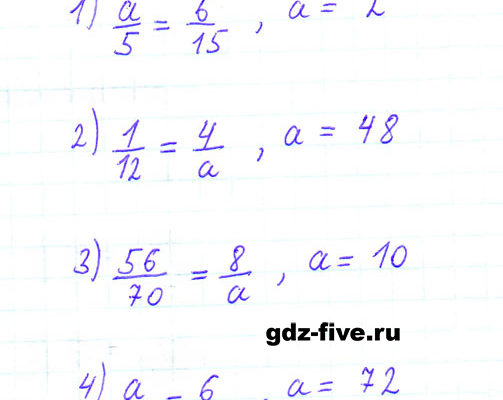 1) a/5 = 6/15 , a = 2
2) 1/12 = 4/a , a = 48
3) 56/70 = 8/a , a = 10
gdz-five.ru
4) a = 6 , a = 72